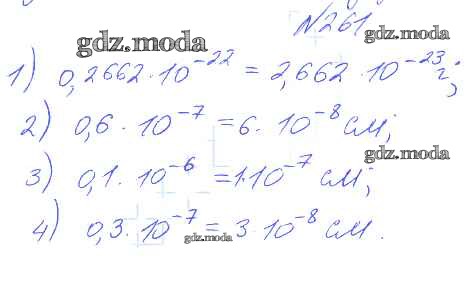 №261
gdz.moda
gdz.moda
1) 0,2662·10⁻²² = 2,662·10⁻²³ г;
2) 0,6·10⁻⁷ = 6·10⁻⁸ см;
gdz.moda
3) 0,1·10⁻⁶ = 1·10⁻⁷ см;
4) 0,3·10⁻⁷ = 3·10⁻⁸ см.
gdz.moda